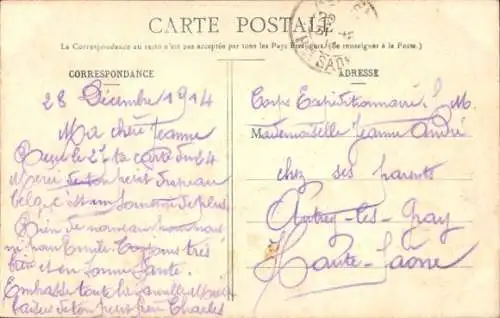 CARTE POSTALE
La Correspondance au recto n'est pas acceptée par tous les Pays Etrangers. (Se renseigner à la Poste.)
CORRESPONDANCE
28 Décembre 1914
Ma chère Jeanne
Reçu le 27 ta carte du 24
Merci de ton petit drapeau
belge c'est un souvenir de plus
Rien de nouveau pour moi
ni pour Emile toujours très
bien et en bonne santé.
Embrasse toute la famille
baiser de ton petit Charles
ADRESSE
Corps Expéditionnaire
Mademoiselle Jeanne André
chez ses parents
Autrey-les-Gray
Haute-Saone